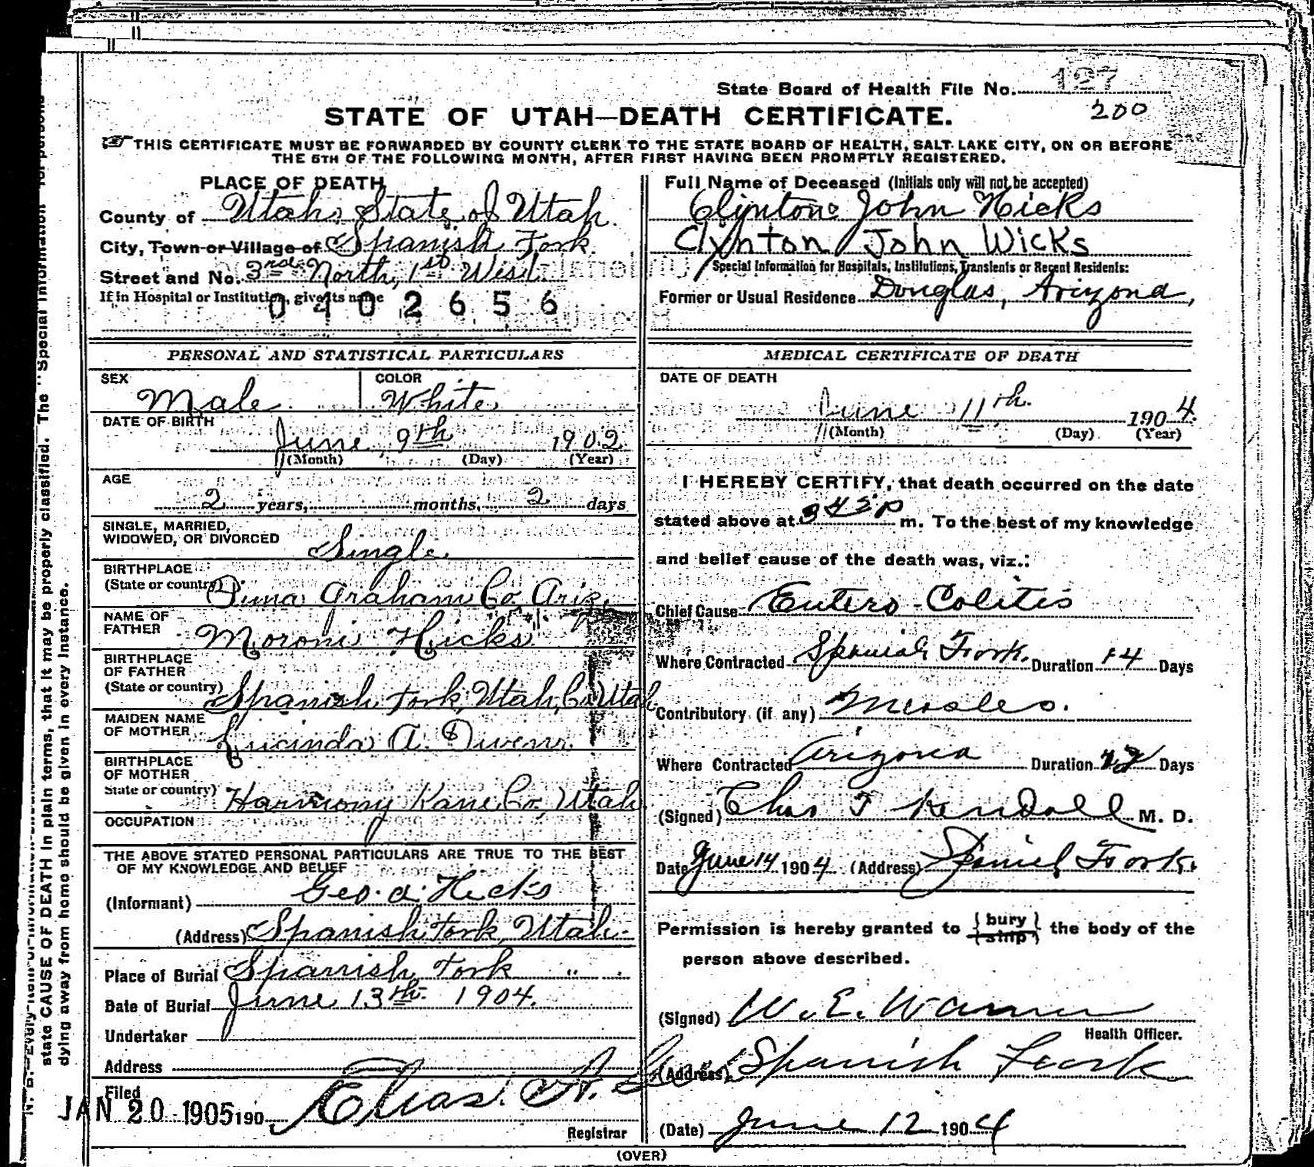 State Board of Health File No. 127
200
STATE OF UTAH—DEATH CERTIFICATE.
THIS CERTIFICATE MUST BE FORWARDED BY COUNTY CLERK TO THE STATE BOARD OF HEALTH, SALT LAKE CITY, ON OR BEFORE
THE 5TH OF THE FOLLOWING MONTH, AFTER FIRST HAVING BEEN PROMPTLY REGISTERED.
PLACE OF DEATH
County of Utah, State of Utah
City, Town or Village of Spanish Fork
Street and No. 3rd North, 1st West.
If in Hospital or Institution, give its name
0402656
Full Name of Deceased (Initials only will not be accepted)
Clynton John Hicks
Clynton John Wicks
Special Information for Hospitals, Institutions, Transients or Recent Residents:
Former or Usual Residence Douglas, Arizona,
PERSONAL AND STATISTICAL PARTICULARS
SEX Male
COLOR White
DATE OF BIRTH
June 9th 1902
(Month) (Day) (Year)
AGE
2 years, months, 2 days
SINGLE, MARRIED,
WIDOWED, OR DIVORCED Single
BIRTHPLACE
(State or country) Pima Graham Co Ariz.
NAME OF
FATHER Moroni Hicks
BIRTHPLACE
OF FATHER
(State or country) Spanish Fork, Utah, Co Utah
MAIDEN NAME
OF MOTHER Lucinda A. Owens
BIRTHPLACE
OF MOTHER
State or country) Harmony Kane Co, Utah
OCCUPATION
THE ABOVE STATED PERSONAL PARTICULARS ARE TRUE TO THE BEST
OF MY KNOWLEDGE AND BELIEF
(Informant) Geo. A. Hicks
(Address) Spanish Fork, Utah
Place of Burial Spanish Fork "
Date of Burial June 13th 1904.
Undertaker
Address
Filed
JAN 20 1905 190
Elias A.
Registrar
MEDICAL CERTIFICATE OF DEATH
DATE OF DEATH
June 11th 1904
(Month) (Day) (Year)
I HEREBY CERTIFY, that death occurred on the date
stated above at 345 P m. To the best of my knowledge
and belief cause of the death was, viz.:
Chief Cause Entero-Colitis
Where Contracted Spanish Fork Duration 14 Days
Contributory (if any) Measles.
Where Contracted Arizona Duration Days
(Signed) Chas T Kendall M. D.
Date June 14 1904 (Address) Spanish Fork.
Permission is hereby granted to {bury / ship} the body of the
person above described.
(Signed) W. E. Warner
Health Officer.
(Address) Spanish Fork
(Date) June 12 1904
(OVER)
state CAUSE OF DEATH in plain terms, that it may be properly classified. The "Special Information"
dying away from home should be given in every instance.